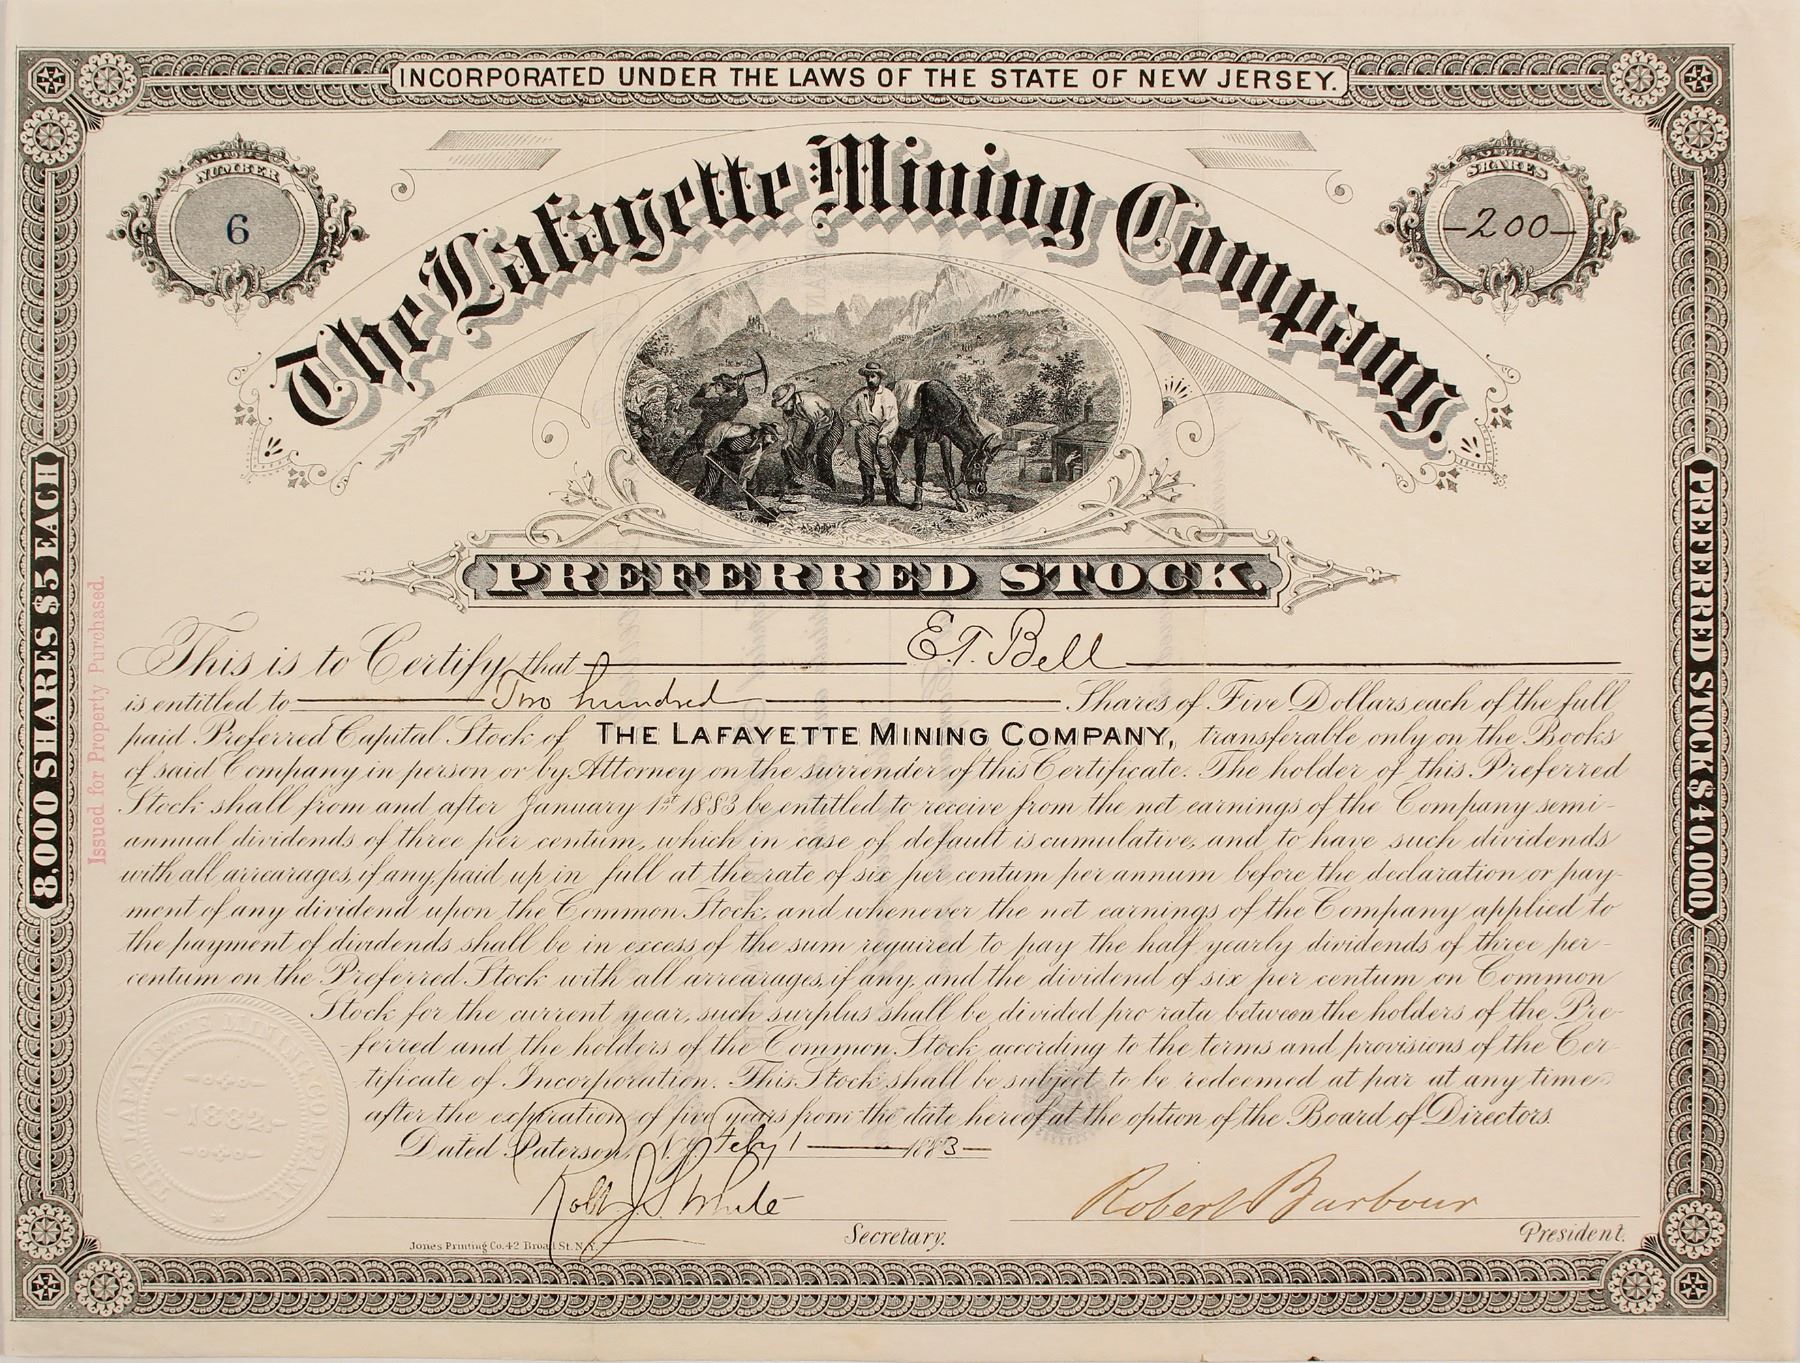 INCORPORATED UNDER THE LAWS OF THE STATE OF NEW JERSEY.
NUMBER
6
SHARES
-200-
The Lafayette Mining Company.
PREFERRED STOCK.
8,000 SHARES $5 EACH
Issued for Property Purchased.
PREFERRED STOCK $40,000.
This is to Certify that E. T. Bell
is entitled to Two hundred Shares of Five Dollars each of the full
paid Preferred Capital Stock of THE LAFAYETTE MINING COMPANY, transferable only on the Books
of said Company in person or by Attorney on the surrender of this Certificate. The holder of this Preferred
Stock shall from and after January 1st 1883 be entitled to receive from the net earnings of the Company semi-
annual dividends of three per centum, which in case of default is cumulative, and to have such dividends
with all arrearages, if any, paid up in full at the rate of six per centum per annum before the declaration or pay-
ment of any dividend upon the Common Stock, and whenever the net earnings of the Company applied to
the payment of dividends shall be in excess of the sum required to pay the half yearly dividends of three per-
centum on the Preferred Stock with all arrearages, if any, and the dividend of six per centum on Common
Stock for the current year, such surplus shall be divided pro rata between the holders of the Pre-
-ferred and the holders of the Common Stock according to the terms and provisions of the Cer-
tificate of Incorporation. This Stock shall be subject to be redeemed at par at any time
after the expiration of five years from the date hereof at the option of the Board of Directors.
Dated Paterson, N.J. Feby 1 1883
THE LAFAYETTE MINING COMPANY
1882
Robt J. S. White
Secretary.
Robert Barbour
President.
Jones Printing Co. 42 Broad St. N.Y.